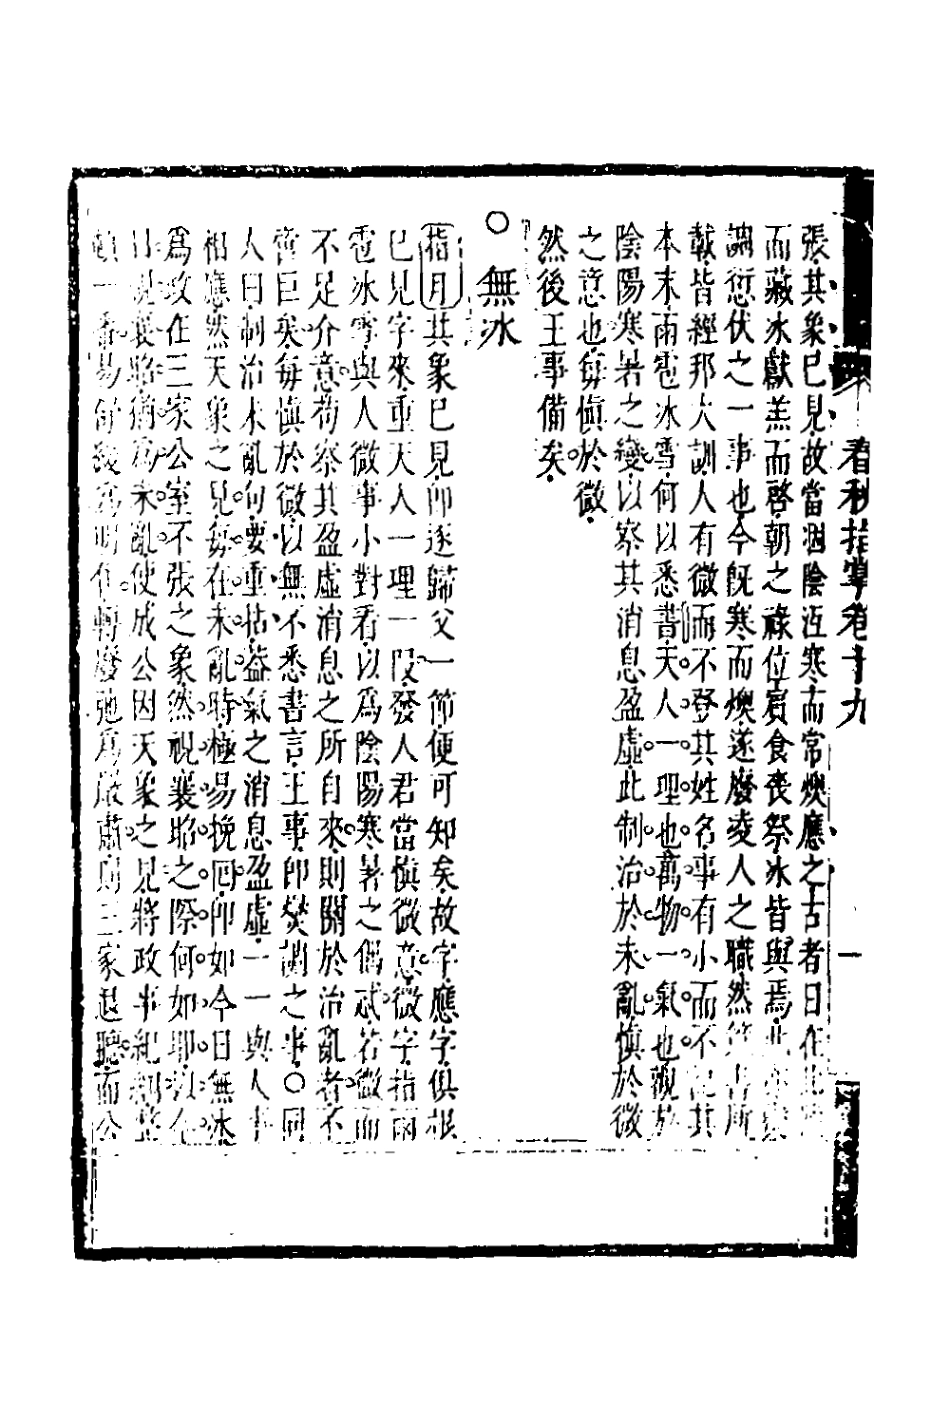 春秋指掌卷十九
一
張其象已見故當涸陰沍寒而常燠應之古者日在北
而藏冰獻羔而啓朝之祿位賓食喪祭冰皆與焉此
調愆伏之一事也今旣寒而燠遂廢凌人之職然
載皆經邦大訓人有微而不登其姓名事有小而不記其
本末雨雹冰雪何以悉書天人一理也萬物一氣也觀於
陰陽寒暑之變以察其消息盈虛此制治於未亂愼於微
之意也每愼於微
然後王事備矣
○無冰
指月其象已見卽逐歸父一節便可知矣故字應字俱根
已見字來重天人一理一段發人君當愼微意微字指雨
雹冰雪與人微事小對看以爲陰陽寒暑之偶忒若微而
不足介意苟察其盈虛消息之所自來則關於治亂者不
啻巨矣每愼於微以無不悉書言王事卽燮調之事○同
人曰制治未亂何要重怙益氣之消息盈虛一一與人事
相應然天象之見每在未亂時極易挽回卽如今日無冰
爲政在三家公室不張之象然視襄昭之際何如耶
襄昭猶爲未亂使成公因天象之見將政事紀綱整
頓一番易
轉廢弛爲嚴肅則三家退聽而公